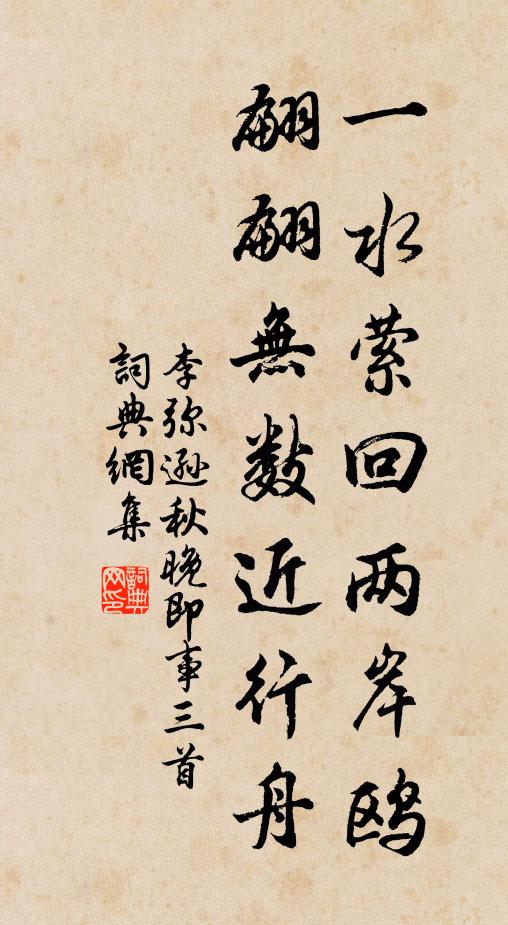 一水萦回两岸鸥
翩翩無数近行舟
李弥逊秋晚即事三首
詞典網集
詞典网印